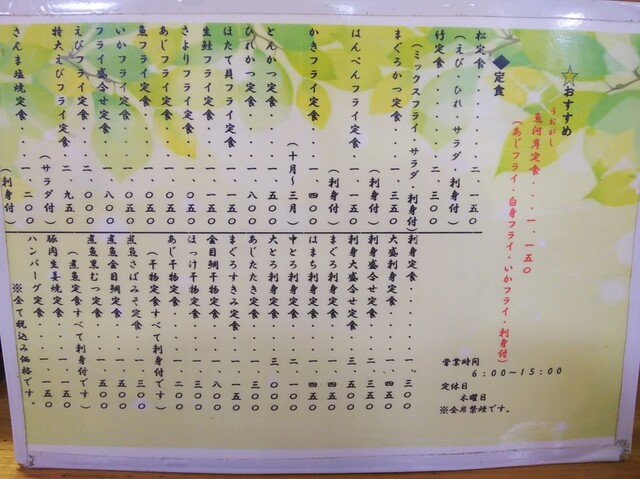 ☆おすすめ
うおがし
魚河岸定食・・・・一、一五〇
(あじフライ・白身フライ・いかフライ・刺身付)
◆定食
松定食・・・・・・・二、一五〇
(えび・ひれ・サラダ・刺身付)
竹定食・・・・・・・二、三〇〇
(ミックスフライ・サラダ・刺身付)
まぐろかつ定食・・・・一、三五〇
(刺身付)
はんぺんフライ定食・・一、一五〇
(刺身付)
かきフライ定食・・・・一、四〇〇
(十月~三月)
とんかつ定食・・・・・一、五〇〇
ひれかつ定食・・・・・一、八〇〇
ほたて貝フライ定食・・一、一五〇
生鮭フライ定食・・・・一、一五〇
さよりフライ定食・・・一、〇五〇
あじフライ定食・・・・一、〇五〇
魚フライ定食・・・・・一、〇五〇
いかフライ定食・・・・一、〇五〇
フライ盛合せ定食・・・一、八〇〇
えびフライ定食・・・・二、一〇〇
特大えびフライ定食・・二、九五〇
(サラダ付)
さんま塩焼定食・・・・一、二〇〇
(刺身付)
刺身定食・・・・・・一、三〇〇
大盛刺身定食・・・・一、四五〇
刺身盛合せ定食・・・二、三五〇
刺身大盛合せ定食・・三、五〇〇
まぐろ定食・・・・・一、四五〇
はまち刺定食・・・・一、四五〇
中とろ刺定食・・・・二、一〇〇
大とろ刺定食・・・・三、〇〇〇
あじたたき定食・・・一、三〇〇
まぐろすきみ定食・・一、一五〇
金目鯛干物定食・・・一、八〇〇
ほっけ干物定食・・・一、三〇〇
あじ干物定食・・・・一、二〇〇
(干物定食すべて刺身付です)
煮魚さばみそ定食・・一、三〇〇
煮魚金目鯛定食・・・一、五〇〇
煮魚黒むつ定食・・・一、五〇〇
(煮魚定食すべて刺身付です)
豚肉生姜焼定食・・・一、一五〇
ハンバーグ定食・・・一、一五〇
※全て税込み価格です。
営業時間
6:00~15:00
定休日
木曜日
※全席禁煙です。